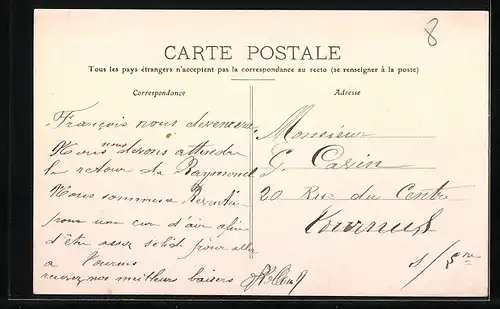 8
CARTE POSTALE
Tous les pays étrangers n'acceptent pas la correspondance au recto (se renseigner à la poste)
Correspondance
François nous
Nous nous devons attendre
le retour de Raymond
Nous sommes
pour une cure d'air afin
d'être assez solide pour aller
a Tournus
recevez nos meilleurs baisers
Adresse
Monsieur
G.
20 Rue du Centre
Tournus
s/ Sne